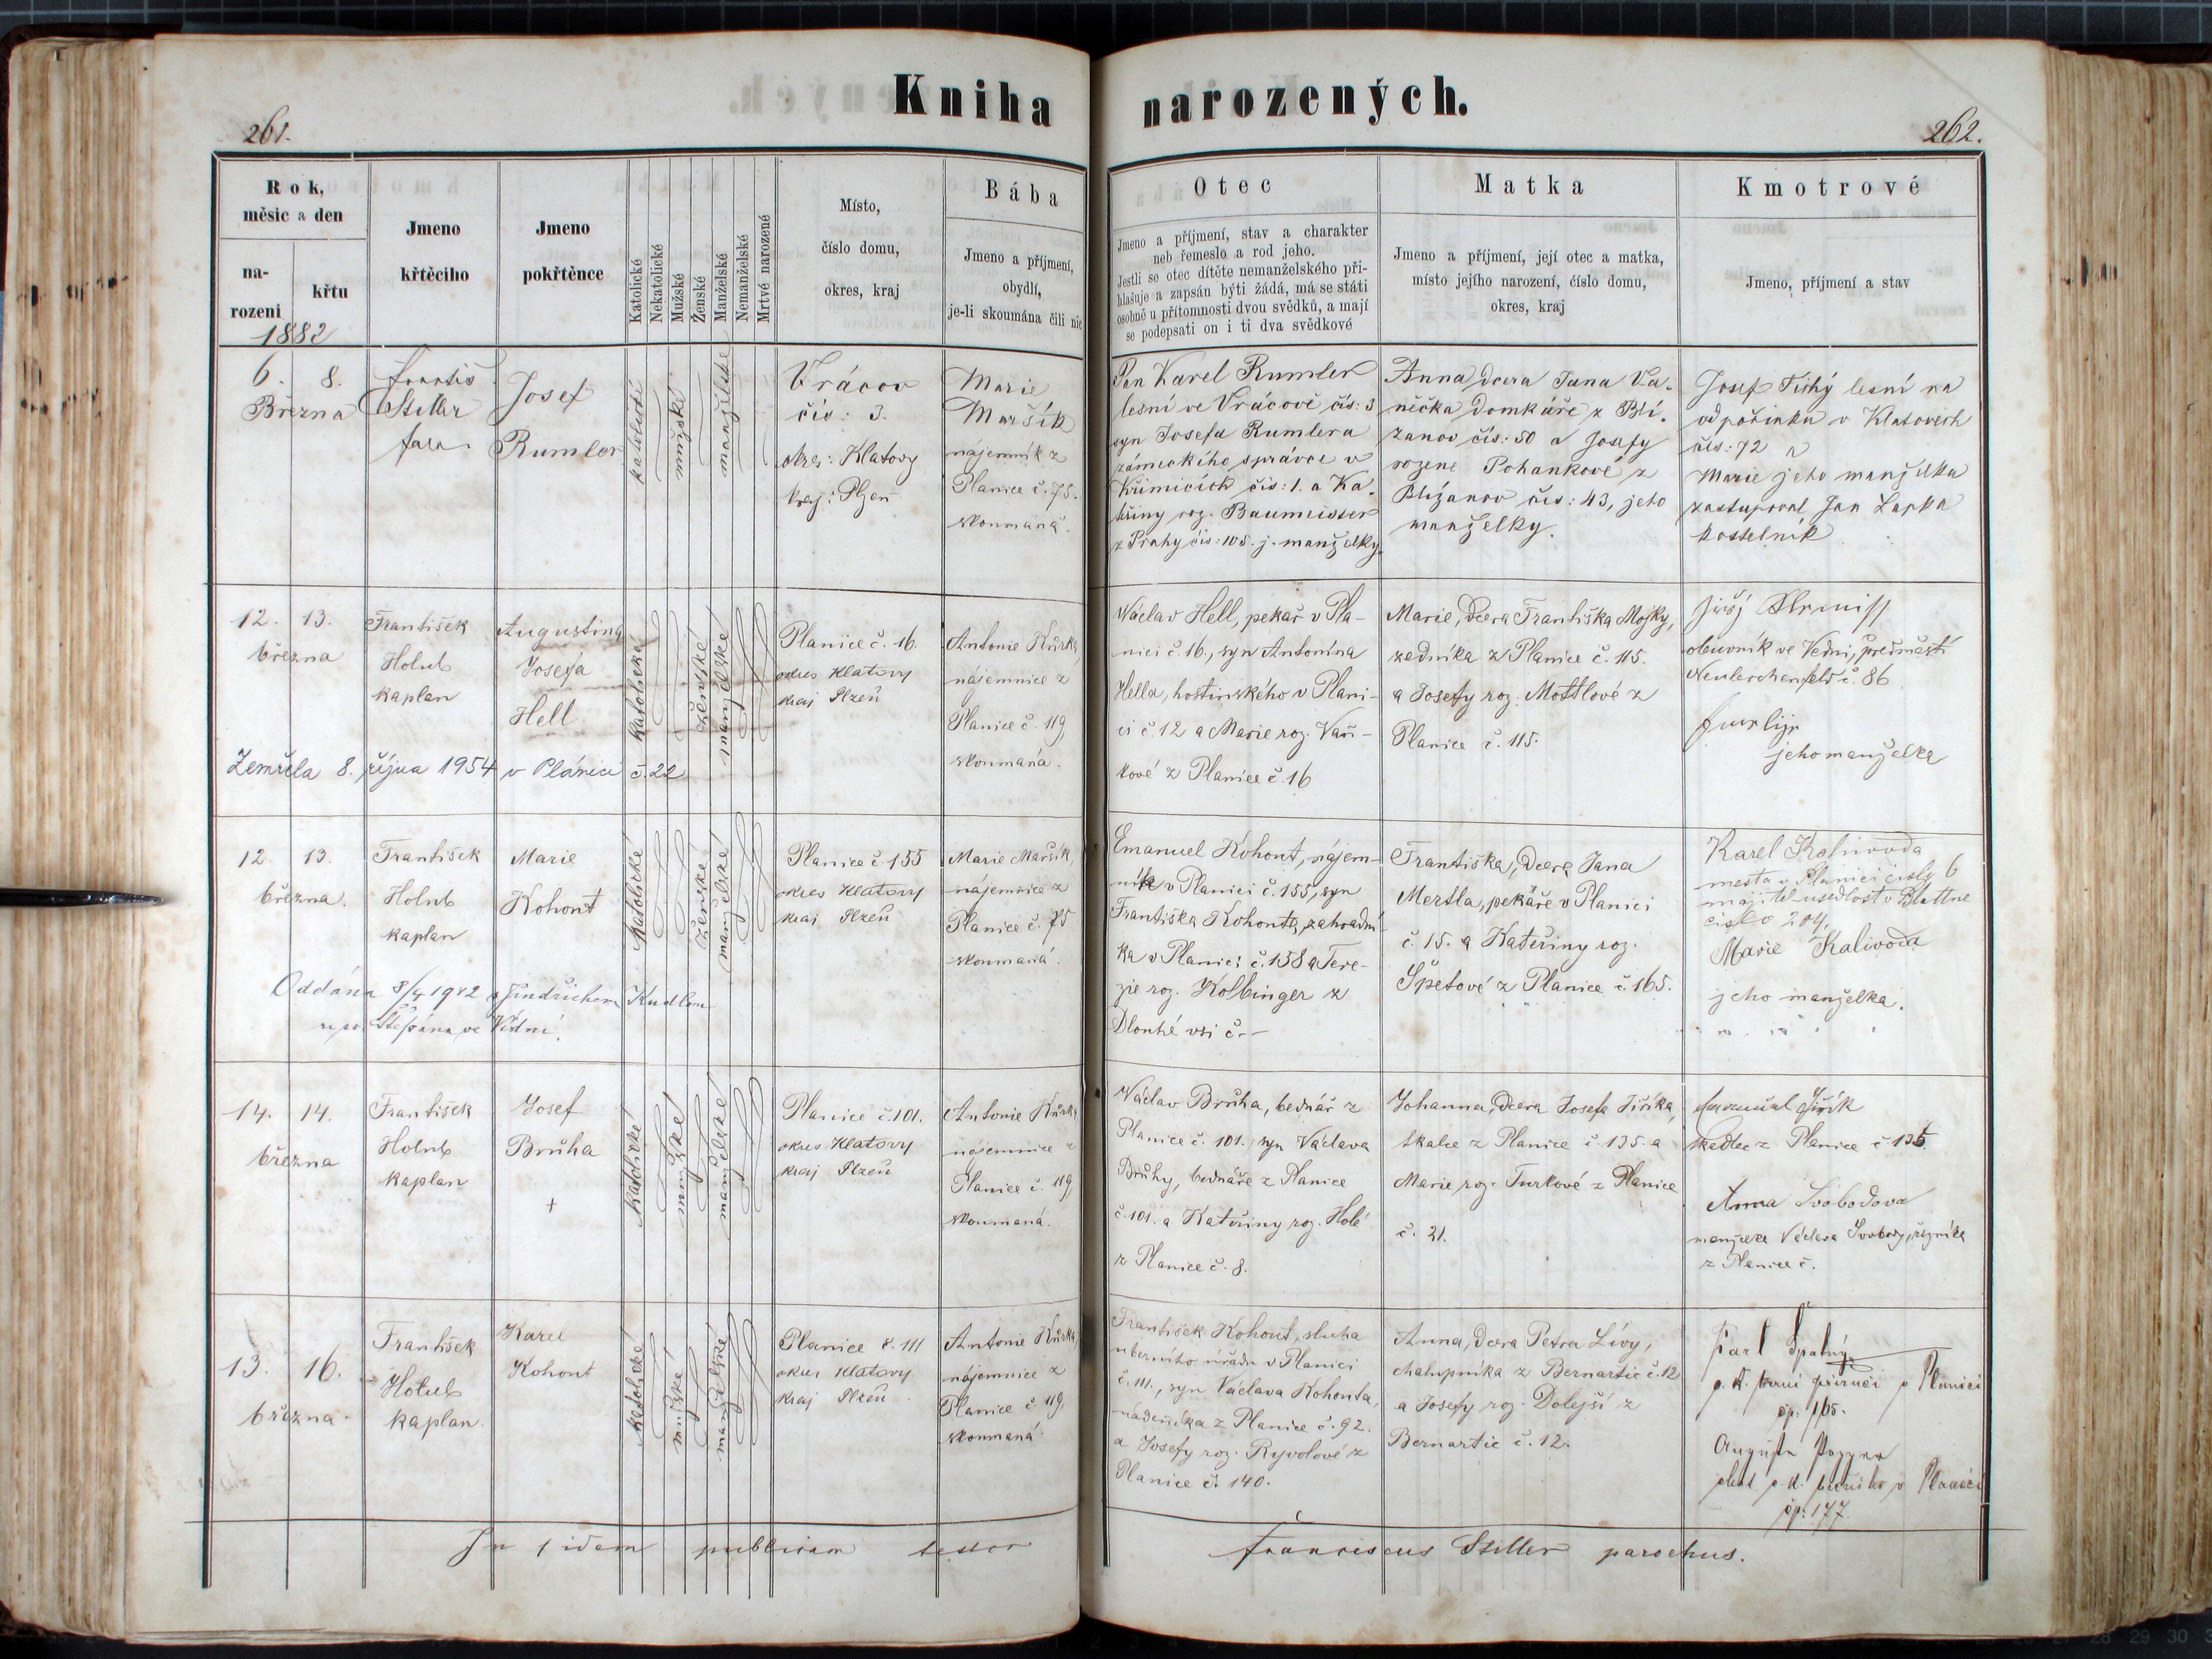 Kniha narozených.
261.
262.
Rok,
měsíc a den
na-
rození
křtu
1882
Jmeno
křtěcího
Jmeno
pokřtěnce
Katolické
Nekatolické
Mužské
Ženské
Manželské
Nemanželské
Mrtvé narozené
Místo,
číslo domu,
okres, kraj
Bába
Jmeno a příjmení,
obydlí,
je-li skoumána čili nic
Otec
Jmeno a příjmení, stav a charakter
neb řemeslo a rod jeho.
Jestli se otec dítěte nemanželského při-
hlašuje a zapsán býti žádá, má se státi
osobně u přítomnosti dvou svědků, a mají
se podepsati on i ti dva svědkové
Matka
Jmeno a příjmení, její otec a matka,
místo jejího narození, číslo domu,
okres, kraj
Kmotrové
Jmeno, příjmení a stav
6. 8.
Března
Stiller
Josef
Rumler
katolické
mužské
manželské
Vrácov
čís: 3.
okres: Klatovy
kraj: Plzeň
Marie
Maršík
nájemník z
Planice č. 75.
skoumaná.
Pan Karel Rumler
lesní ve Vrácově čís: 3
syn Josefa Rumlera
zámeckého správce v
Křimicích čís: 1. a Ka-
teřiny roz. Baumeister
z Prahy čís: 105. j. manželky.
Anna, dcera Jana Va-
něčka domkáře z Bli-
žanov čís: 50 a Josefy
rozené Pohankové z
Bližanov čís: 43, jeho
manželky.
Josef Tichý lesní na
odpočinku v Klatovech
čís: 72 a
Marie jeho manželka
zastupoval Jan
kostelník
12. 13.
března
František
Holub
kaplan
Augustina
Josefa
Hell.
katolické
ženské
manželské
Planice č. 16.
okres Klatovy
kraj Plzeň
Antonie Kůrka
nájemnice z
Planice č. 119,
skoumaná.
Václav Hell, pekař v Pla-
nici č. 16., syn Antonína
Hella, hostinského v Plani-
ci č. 12 a Marie roz. Vaří-
kové z Planice č. 16
Marie, dcera Františka Mojky,
zedníka z Planice č. 115.
a Josefy roz. Mottlové z
Planice č. 115.
Jiří
obuvník ve Vídni, předměstí
Neulerchenfeld č. 86
jeho manželka
Zemřela 8. října 1954 v Plánici č. 22
12 13.
března.
František
Holub
kaplan
Marie
Kohout
katolické
ženské
manželské
Planice č. 155
okres Klatovy
kraj Plzeň
Marie Maršík,
nájemnice z
Planice č. 75
skoumaná.
Emanuel Kohout, nájem-
ník v Planici č. 155, syn
Františka Kohouta, zahradní-
ka v Planici č. 158 a Tere-
zie roz. Kolbinger z
Dlouhé vsi č. -
Františka, dcera Jana
Mertla, pekaře v Planici
č. 15. a Kateřiny roz.
Špetové z Planice č. 165.
Karel Kalivoda
města v Planici číslo 6
majitel usedlosti v Blattne
číslo 204,
Marie Kalivoda
jeho manželka.
Oddána 8/4 1942 s Jindřichem Kudlem
u sv. Štěpána ve Vídni.
14. 14.
března
František
Holub
kaplan
Josef
Brůha
+
katolické
mužské
manželské
Planice č. 101.
okres Klatovy
kraj Plzeň
Antonie Kůrka
nájemnice z
Planice č. 119,
skoumaná.
Václav Brůha, bednář z
Planice č. 101., syn Václava
Brůhy, bednáře z Planice
č. 101. a Kateřiny roz. Holé
z Planice č. 8.
Johanna, dcera Josefa Jiříka,
tkalce z Planice č. 135. a
Marie roz. Turkové z Planice
č. 21.
Jiřík
tkadlec z Planice č 135.
Anna Svobodova
manželka Václava Svobody, řezníka
z Planice č.
13. 16.
března.
František
Holub
kaplan.
Karel
Kohout
katolické
mužské
manželské
Planice č. 111
okres Klatovy
kraj Plzeň
Antonie Kůrka,
nájemnice z
Planice č 119,
skoumaná
František Kohout, sluha
u berního úřadu v Planici
č. 111., syn Václava Kohouta,
nádeníka z Planice č. 92.
a Josefy roz. Ryvolové z
Planice č. 140.
Anna, dcera Petra Lívy,
chalupníka z Bernartic č. 12
a Josefy roz. Dolejší z
Bernartic č. 12.
Karl Špatný
c. k. berní příručí v Planici
čp. 165.
Augusta
c. k. v Planici
čp. 177.
In fidem publicam testor
Franciscus Stiller parochus.